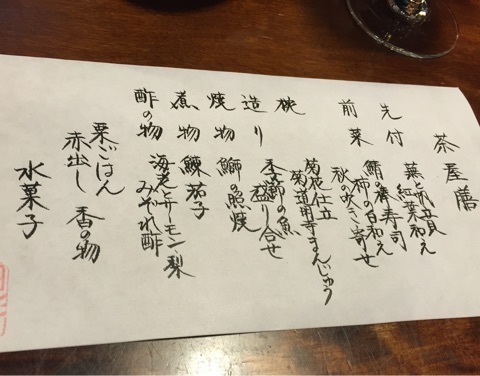 茶屋膳
先付 蕪と帆立貝
紅葉和え
前菜 鯖の棒寿司
柿の白和え
秋の吹き寄せ
椀 菊花仕立
菊道明寺まんじゅう
造り 季節の魚
盛り合せ
焼物 鰤の照焼
煮物 鰊茄子
酢の物 海老とサーモン・梨
みぞれ酢
栗ごはん
赤出し 香の物
水菓子